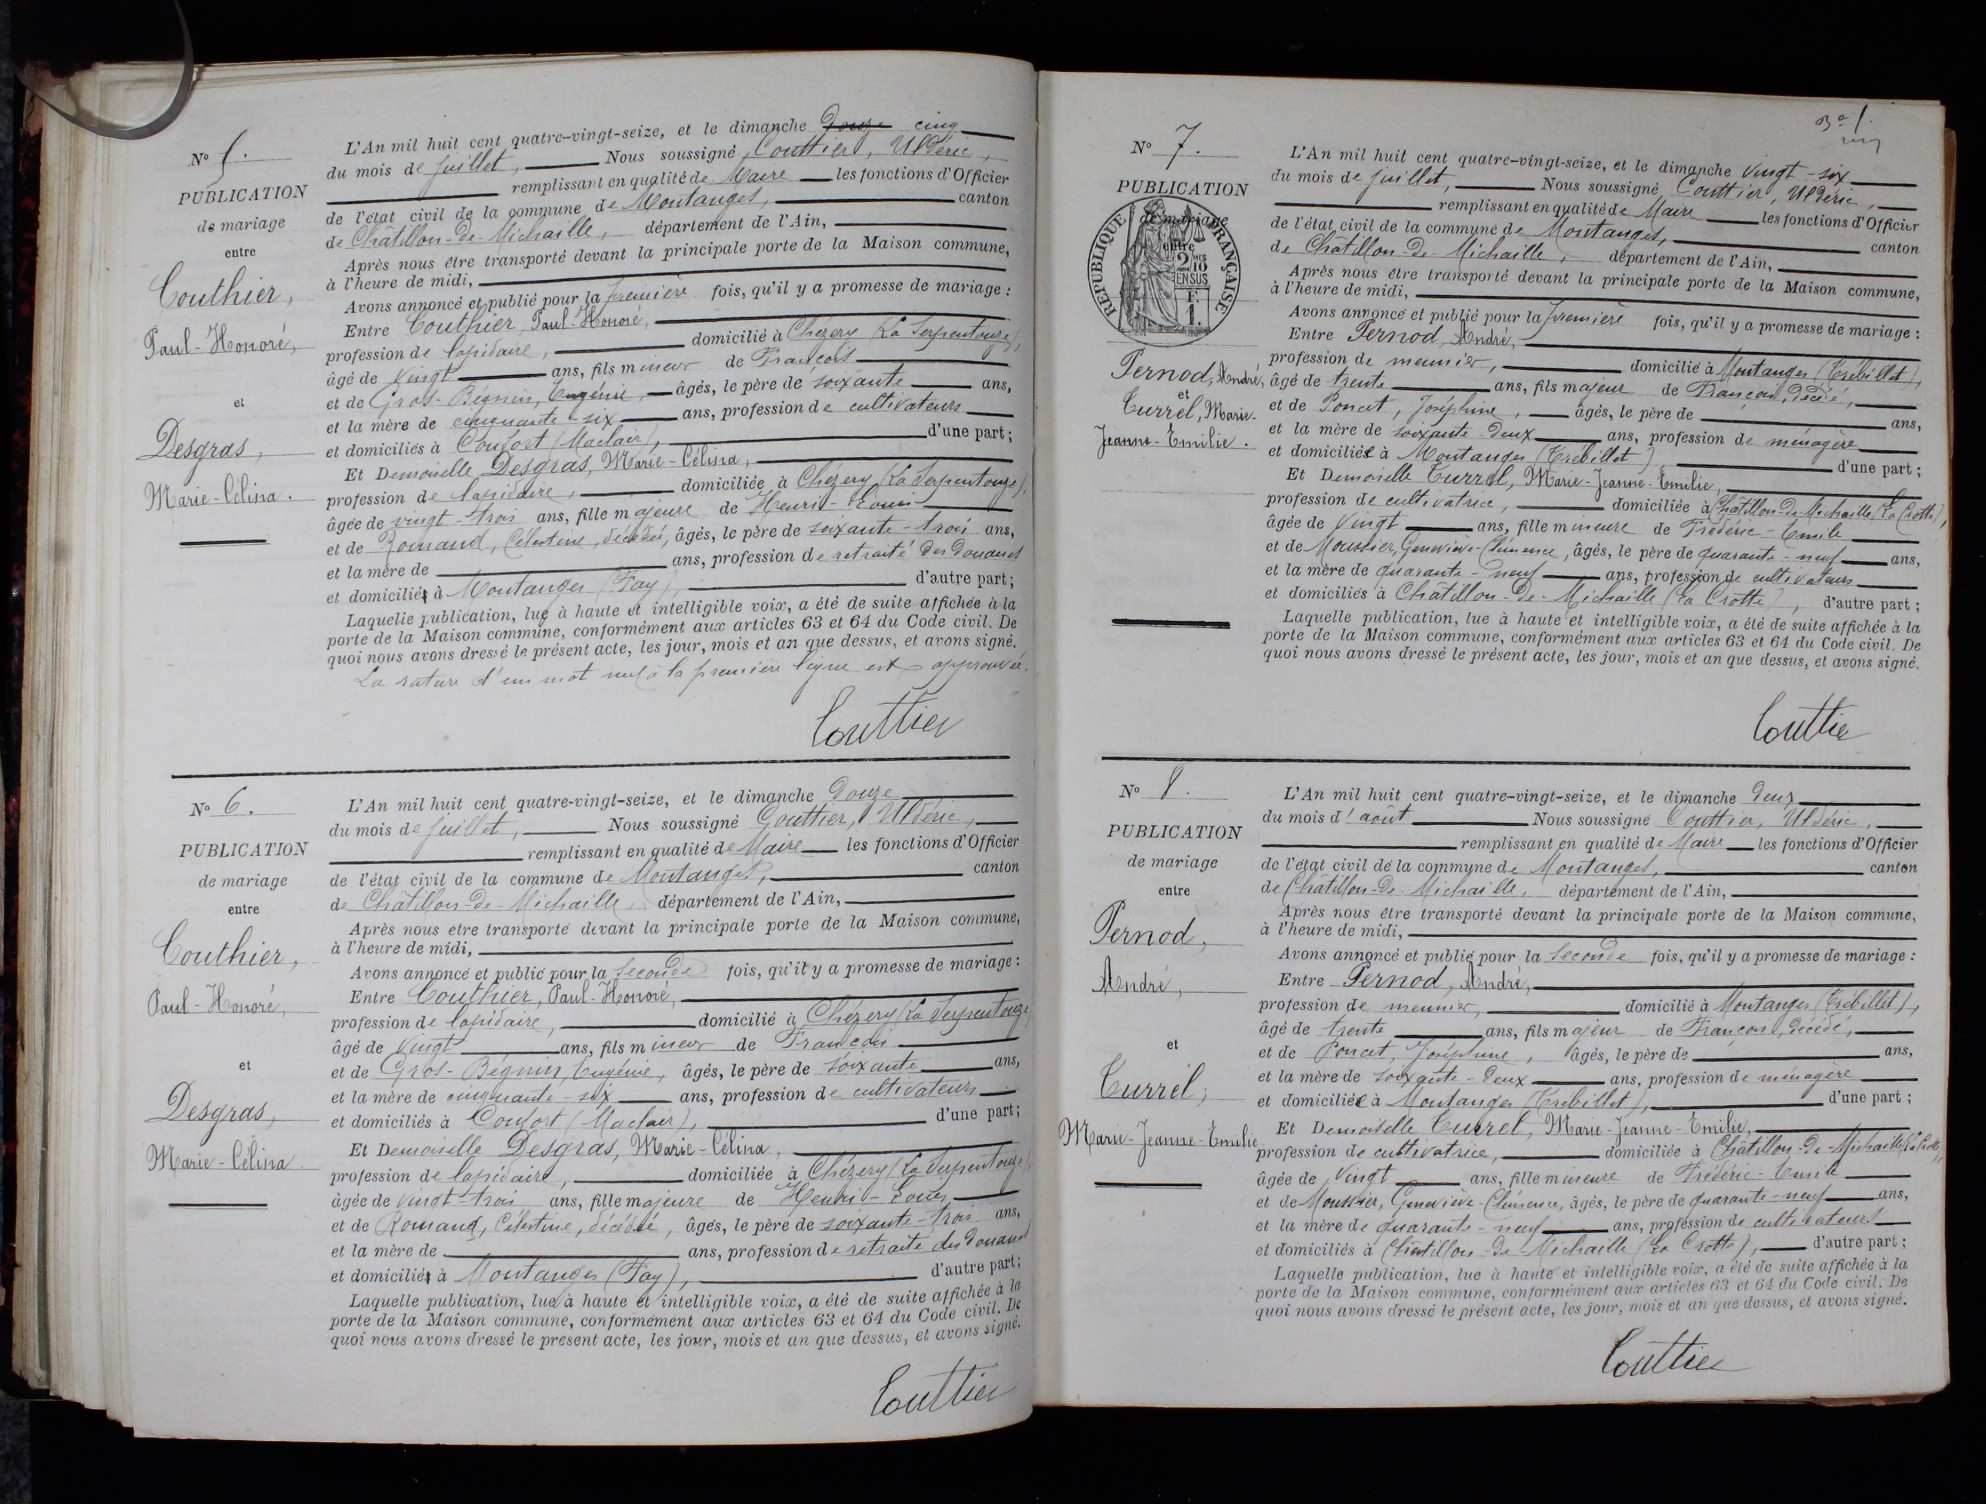 Nº 5.
PUBLICATION
de mariage
entre
Couthier,
Paul-Honoré,
et
Desgras,
Marie-Célina.
L'An mil huit cent quatre-vingt-seize, et le dimanche douze cinq
du mois de juillet, Nous soussigné Couttier, Uldéric,
remplissant en qualité de Maire les fonctions d'Officier
de l'état civil de la commune de Montanges, canton
de Châtillon-de-Michaille, département de l'Ain,
Après nous être transporté devant la principale porte de la Maison commune,
à l'heure de midi,
Avons annoncé et publié pour la première fois, qu'il y a promesse de mariage :
Entre Couthier, Paul-Honoré,
profession de lapidaire, domicilié à Chézery (La Serpentouze),
âgé de vingt ans, fils mineur de François
et de Gros-Béguin, Eugénie, âgés, le père de soixante ans,
et la mère de cinquante-six ans, profession de cultivateurs
et domiciliés à Confort (Maclair), d'une part ;
Et Demoiselle Desgras, Marie-Célina,
profession de lapidaire, domiciliée à Chézery (La Serpentouze),
âgée de vingt-trois ans, fille majeure de Henri-Louis
et de Romand, Célestine, décédée, âgés, le père de soixante-trois ans,
et la mère de ans, profession de retraité des Douanes
et domiciliés à Montanges (Fay), d'autre part ;
Laquelle publication, lue à haute et intelligible voix, a été de suite affichée à la
porte de la Maison commune, conformément aux articles 63 et 64 du Code civil. De
quoi nous avons dressé le présent acte, les jour, mois et an que dessus, et avons signé.
La rature d'un mot nul à la première ligne est approuvée.
Couttier
Nº 6.
PUBLICATION
de mariage
entre
Couthier,
Paul-Honoré,
et
Desgras,
Marie-Célina.
L'An mil huit cent quatre-vingt-seize, et le dimanche douze
du mois de juillet, Nous soussigné Couttier, Uldéric,
remplissant en qualité de Maire les fonctions d'Officier
de l'état civil de la commune de Montanges, canton
de Châtillon-de-Michaille, département de l'Ain,
Après nous être transporté devant la principale porte de la Maison commune,
à l'heure de midi,
Avons annoncé et publié pour la seconde fois, qu'il y a promesse de mariage :
Entre Couthier, Paul-Honoré,
profession de lapidaire, domicilié à Chézery (La Serpentouze)
âgé de vingt ans, fils mineur de François
et de Gros-Béguin, Eugénie, âgés, le père de soixante ans,
et la mère de cinquante-six ans, profession de cultivateurs
et domiciliés à Confort (Maclair), d'une part ;
Et Demoiselle Desgras, Marie-Célina,
profession de lapidaire, domiciliée à Chézery (La Serpentouze),
âgée de vingt-trois ans, fille majeure de Henri-Louis
et de Romand, Célestine, décédée, âgés, le père de soixante-trois ans,
et la mère de ans, profession de retraité des Douanes
et domiciliés à Montanges (Fay), d'autre part ;
Laquelle publication, lue à haute et intelligible voix, a été de suite affichée à la
porte de la Maison commune, conformément aux articles 63 et 64 du Code civil. De
quoi nous avons dressé le présent acte, les jour, mois et an que dessus, et avons signé.
Couttier
Nº 7.
PUBLICATION
de mariage
entre
RÉPUBLIQUE FRANÇAISE
2 MES
10
EN SUS
F.
1.
Pernod, André,
et
Turrel, Marie-
Jeanne-Emilie.
L'An mil huit cent quatre-vingt-seize, et le dimanche vingt-six
du mois de juillet, Nous soussigné Couttier, Uldéric,
remplissant en qualité de Maire les fonctions d'Officier
de l'état civil de la commune de Montanges,
de Châtillon-de-Michaille, département de l'Ain, canton
Après nous être transporté devant la principale porte de la Maison commune,
à l'heure de midi,
Avons annoncé et publié pour la première fois, qu'il y a promesse de mariage :
Entre Pernod, André,
profession de meunier, domicilié à Montanges (Trébillet),
âgé de trente ans, fils majeur de François, décédé,
et de Poncet, Joséphine, âgés, le père de ans,
et la mère de soixante-deux ans, profession de ménagère
et domiciliée à Montanges (Trébillet), d'une part ;
Et Demoiselle Turrel, Marie-Jeanne-Emilie,
profession de cultivatrice, domiciliée à Châtillon-de-Michaille (La Crotte),
âgée de vingt ans, fille mineure de Frédéric-Emile
et de Moussier, Geneviève-Clémence, âgés, le père de quarante-neuf ans,
et la mère de quarante-neuf ans, profession de cultivateurs
et domiciliés à Châtillon-de-Michaille (La Crotte), d'autre part ;
Laquelle publication, lue à haute et intelligible voix, a été de suite affichée à la
porte de la Maison commune, conformément aux articles 63 et 64 du Code civil. De
quoi nous avons dressé le présent acte, les jour, mois et an que dessus, et avons signé.
Couttier
Nº 8.
PUBLICATION
de mariage
entre
Pernod,
André,
et
Turrel,
Marie-Jeanne-Emilie
L'An mil huit cent quatre-vingt-seize, et le dimanche deux
du mois d'août Nous soussigné Couttier, Uldéric,
remplissant en qualité de Maire les fonctions d'Officier
de l'état civil de la commune de Montanges, canton
de Châtillon-de-Michaille, département de l'Ain,
Après nous être transporté devant la principale porte de la Maison commune,
à l'heure de midi,
Avons annoncé et publié pour la seconde fois, qu'il y a promesse de mariage :
Entre Pernod, André,
profession de meunier, domicilié à Montanges (Trébillet),
âgé de trente ans, fils majeur de François, décédé,
et de Poncet, Joséphine, âgés, le père de ans,
et la mère de soixante-deux ans, profession de ménagère
et domiciliée à Montanges (Trébillet), d'une part ;
Et Demoiselle Turrel, Marie-Jeanne-Emilie,
profession de cultivatrice, domiciliée à Châtillon-de-Michaille (La Crotte),
âgée de vingt ans, fille mineure de Frédéric-Emile
et de Moussier, Geneviève-Clémence, âgés, le père de quarante-neuf ans,
et la mère de quarante-neuf ans, profession de cultivateurs
et domiciliés à Châtillon-de-Michaille (La Crotte), d'autre part ;
Laquelle publication, lue à haute et intelligible voix, a été de suite affichée à la
porte de la Maison commune, conformément aux articles 63 et 64 du Code civil. De
quoi nous avons dressé le présent acte, les jour, mois et an que dessus, et avons signé.
Couttier